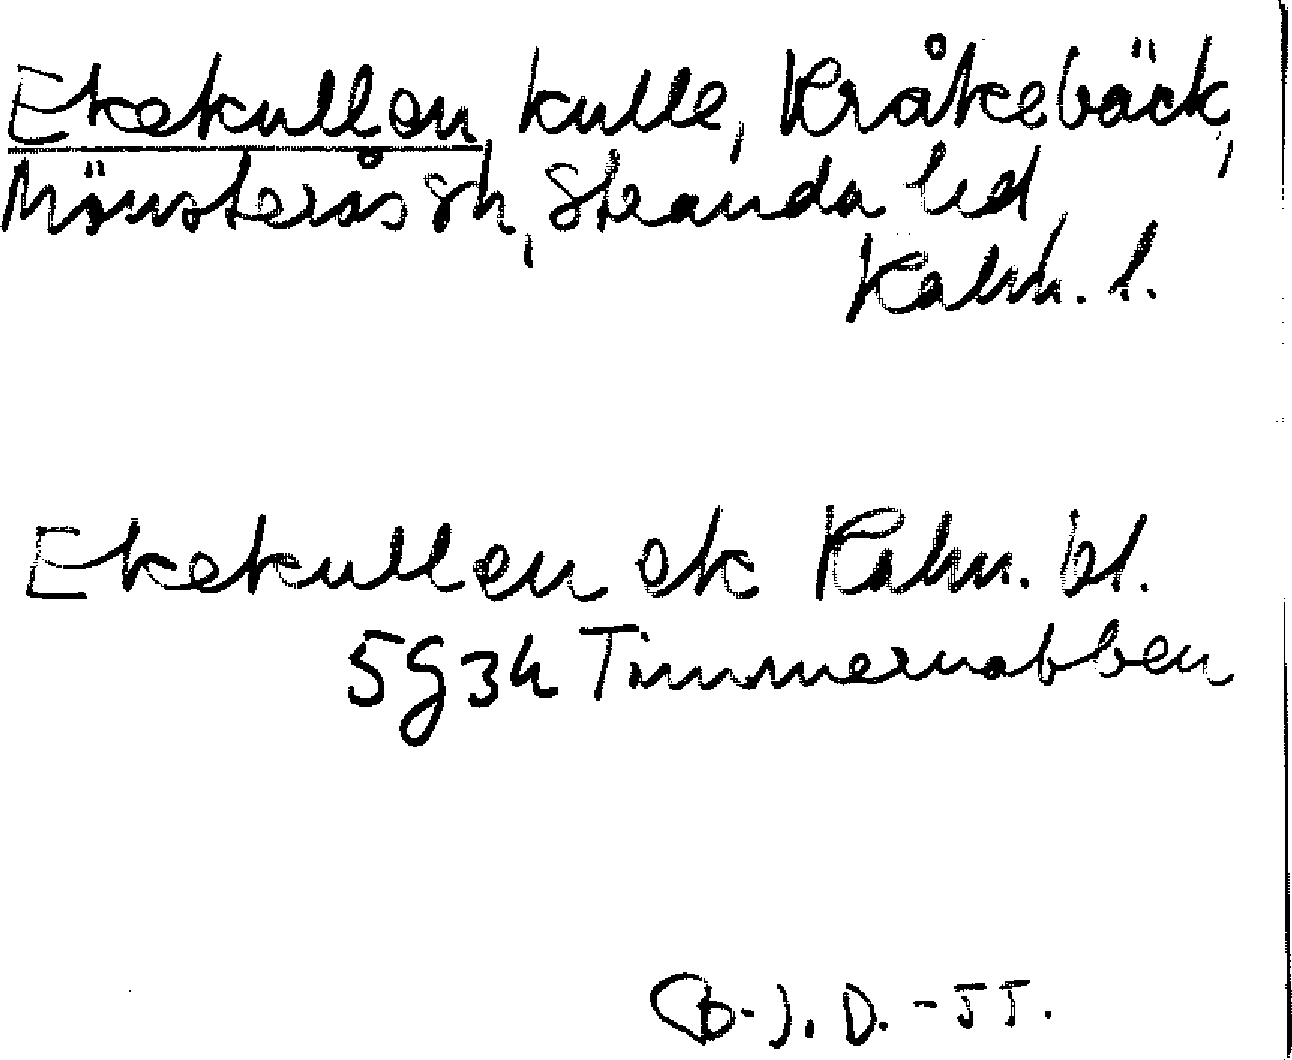 Ekekullen, kulle, Kråkebäck,
Mönsterås sn, Stranda hd,
Kalm. l.
Ekekullen ek Kalm. bl.
5G3h Timmernabben
B. J. D. -55.